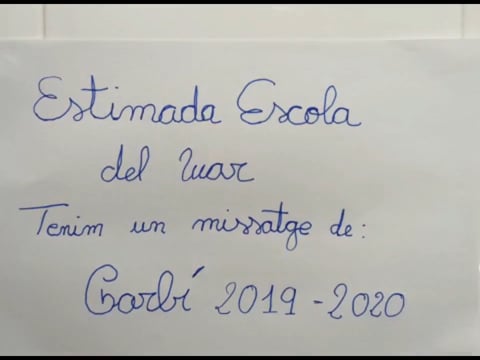 Estimada Escola
del Mar
Tenim un missatge de:
Garbí 2019-2020